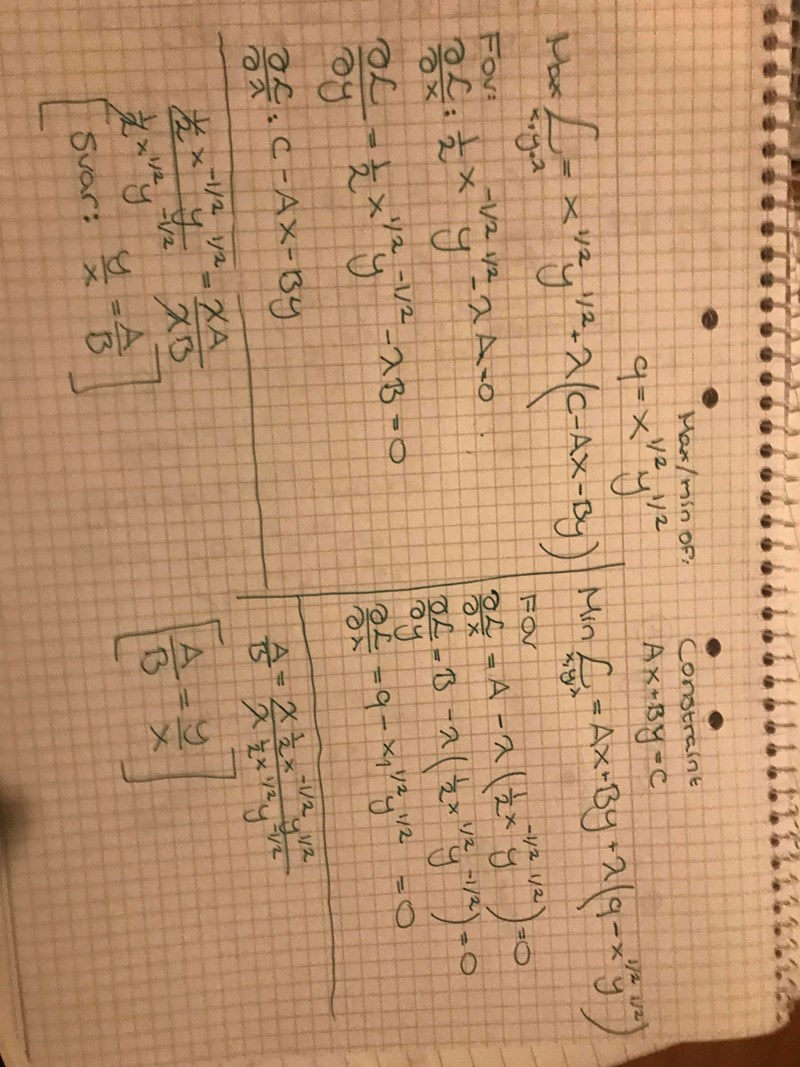 Max/min of: Constraint
q = x^1/2 y^1/2 Ax + By = C
Max L = x^1/2 y^1/2 + λ(C - Ax - By)
x, y, λ
FOV:
∂L/∂x : 1/2 x^-1/2 y^1/2 - λA = 0
∂L/∂y = 1/2 x^1/2 y^-1/2 - λB = 0
∂L/∂λ : C - Ax - By
1/2 x^-1/2 y^1/2 / 1/2 x^1/2 y^-1/2 = λA / λB
[Svar: y/x = A/B]
Min L = Ax + By + λ(q - x^1/2 y^1/2)
x, y, λ
FOV
∂L/∂x = A - λ(1/2 x^-1/2 y^1/2) = 0
∂L/∂y = B - λ(1/2 x^1/2 y^-1/2) = 0
∂L/∂λ = q - x^1/2 y^1/2 = 0
A/B = λ 1/2 x^-1/2 y^1/2 / λ 1/2 x^1/2 y^-1/2
[A/B = y/x]